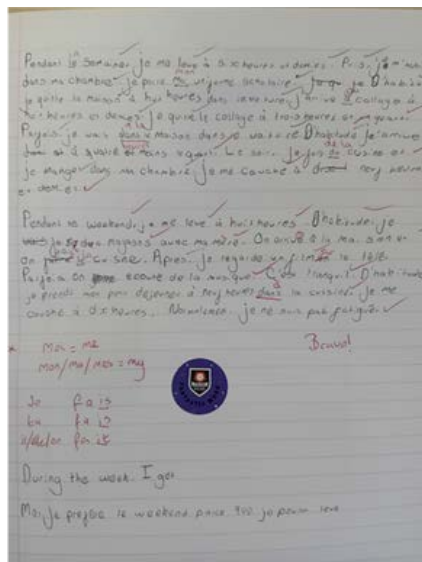 Pendant la semaine, je me lève à six heures et demie. Puis, je m'hab
dans ma chambre. Je porte mon uniforme scolaire. je D'habitude
je quitte la maison à huit heures dans la voiture. J'arrive à collage à
huit heures et demie. Je quitte le collage à trois heures et
Parfois, je vais à la maison dans je voiture D'habitude je arrive
à quatre moins quart. Le soir, je fais de la cuisine et
je manger dans ma chambre. Je me couche à neuf heures
et demie.
Pendant le weekend, je me lève à huit heures. D'habitude, je
magasins avec ma mère. On arrive à la maison et
on cuisine. Après, je regarde un film à la télé.
Parfois on écoute de la musique. C'est tranquil. D'habitude
je prends mon petit dejeuner à neuf heures dans la cuisine. Je me
couche à dix heures. Normalement, je ne suis pas fatiguée.
Bravo!
Moi = me
mon/ma/mes = my
Je fais
tu fais
il/elle/on fait
During the week, I get
Mais, je préfère le weekend parce que je peux